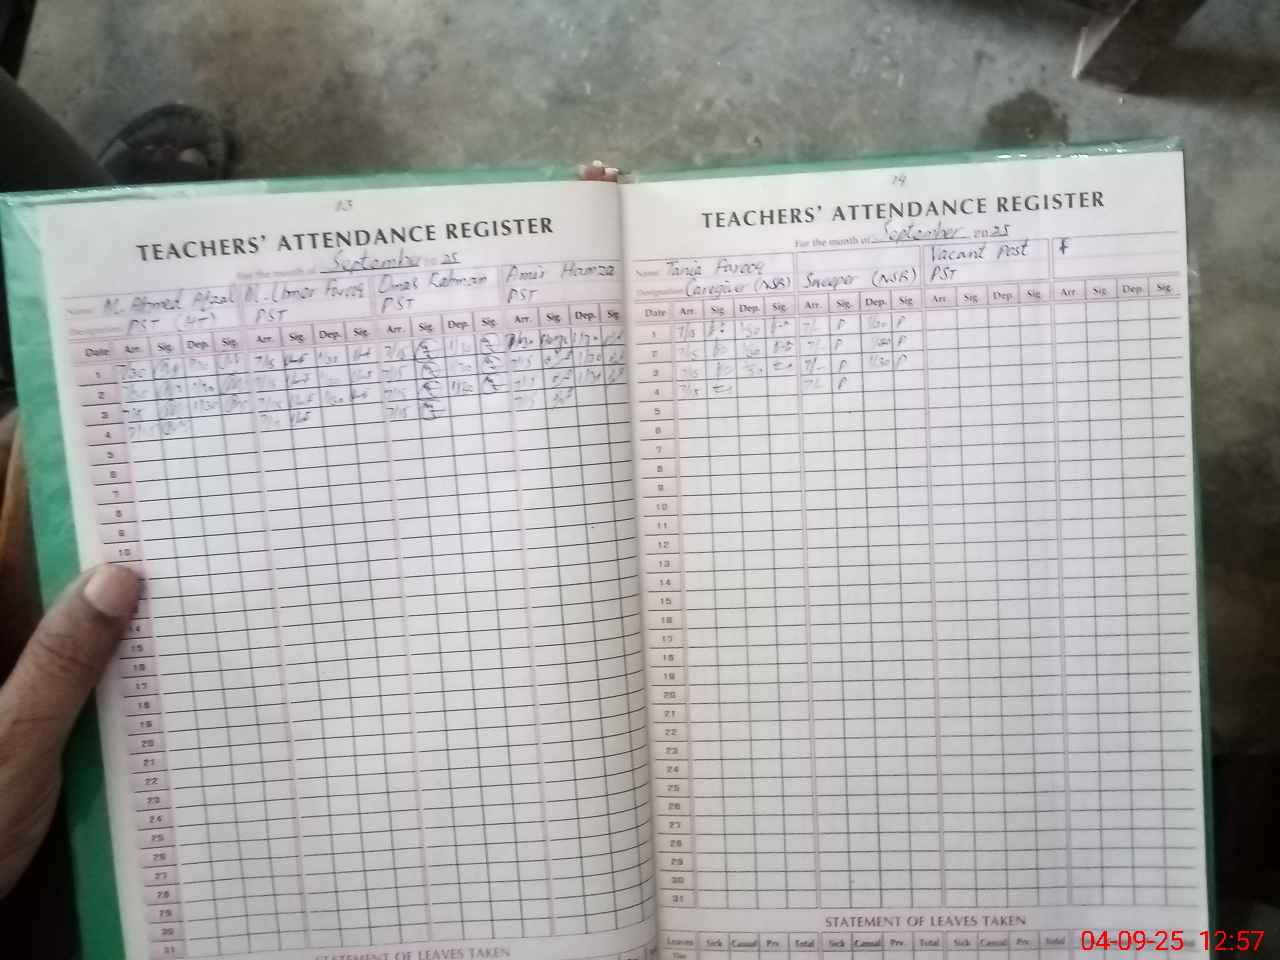 13
TEACHERS' ATTENDANCE REGISTER
For the month of September 20 25
Name M. Ahmed Afzal M. Umer Farooq Omar Rahman Amir Hamza
Designation PST PST PST PST
Date Arr. Sig. Dep. Sig. Arr. Sig. Dep. Sig. Arr. Sig. Dep. Sig. Arr. Sig. Dep. Sig.
1 7/15 1/30 7/15 1/30
2 7/15 1/30 7/15 7/15
3 7/15 1/30 7/15 1/30 7/15 1/30 1/30
4 7/15 7/15
5
6
7
8
9
10
14
15
16
17
18
19
20
21
22
23
24
25
26
27
28
29
30
31
STATEMENT OF LEAVES TAKEN
14
TEACHERS' ATTENDANCE REGISTER
For the month of September 20 25
Name Tania Farooq Vacant Post f
Designation Caregiver (NSB) Sweeper (NSB) PST
Date Arr. Sig. Dep. Sig. Arr. Sig. Dep. Sig. Arr. Sig. Dep. Sig. Arr. Sig. Dep. Sig.
1 7/15 1/30 7/- P 1/30 P
2 7/15 1/30 7/- P 1/30 P
3 7/15 1/30 7/- P 1/30 P
4 7/15 7/- P
5
6
7
8
9
10
11
12
13
14
15
16
17
18
19
20
21
22
23
24
25
26
27
28
29
30
31
STATEMENT OF LEAVES TAKEN
Leaves Sick Casual Prv. Total Sick Casual Prv. Total Sick Casual Prv. Total
04-09-25 12:57